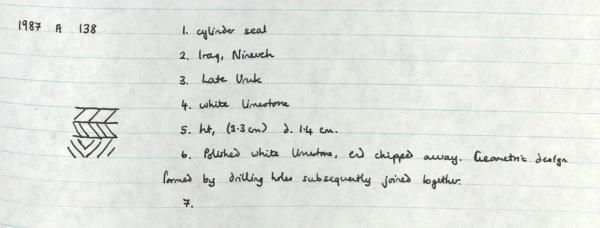 1987 A 138
1. cylinder seal
2. Iraq, Nineveh
3. Late Uruk
4. white limestone
5. ht, (3.3 cm) d. 1.4 cm.
6. Polished white limestone, end chipped away. Geometric design
formed by drilling holes subsequently joined together.
7.